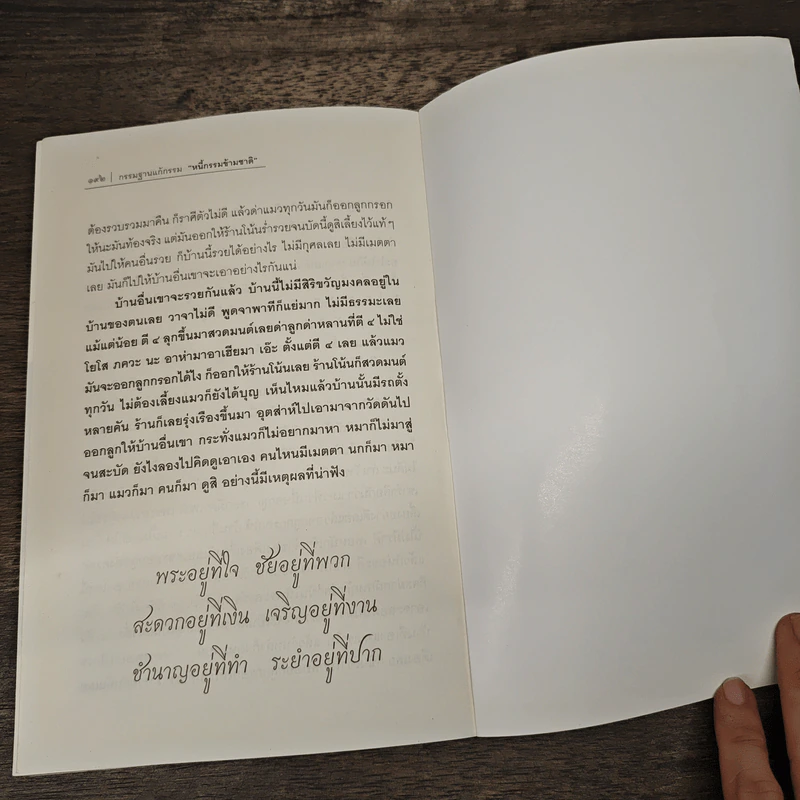 ๑๙๒ | กรรมฐานแก้กรรม "หนี้กรรมข้ามชาติ"
ต้องรวบรวมมาคืน ก็ราคีตัวไม่ดี แล้วด่าแมวทุกวันมันก็ออกลูกกรอก
ให้นะมันท้องจริง แต่มันออกให้ร้านโน้นร่ำรวยจนบัดนี้ดูสิเลี้ยงไว้แท้ๆ
มันไปให้คนอื่นรวย ก็บ้านนี้รวยได้อย่างไร ไม่มีกุศลเลย ไม่มีเมตตา
เลย มันก็ไปให้บ้านอื่นเขาจะเอาอย่างไรกันแน่
บ้านอื่นเขาจะรวยกันแล้ว บ้านนี้ไม่มีสิริขวัญมงคลอยู่ใน
บ้านของตนเลย วาจาไม่ดี พูดจาพาทีก็แย่มาก ไม่มีธรรมะเลย
แม้แต่น้อย ตี ๔ ลุกขึ้นมาสวดมนต์เลยด่าลูกด่าหลานที่ตี ๔ ไม่ใช่
โยโส ภควะ นะ อาห่ามาอาเฮียมา เอ๊ะ ตั้งแต่ตี ๔ เลย แล้วแมว
มันจะออกลูกกรอกได้ไง ก็ออกให้ร้านโน้นเลย ร้านโน้นก็สวดมนต์
ทุกวัน ไม่ต้องเลี้ยงแมวก็ยังได้บุญ เห็นไหมแล้วบ้านนั้นมีรถตั้ง
หลายคัน ร้านก็เลยรุ่งเรืองขึ้นมา อุตส่าห์ไปเอามาจากวัดดันไป
ออกลูกให้บ้านอื่นเขา กระทั่งแมวก็ไม่อยากมาหา หมาก็ไม่มาสู่
จนสะบัด ยังไงลองไปคิดดูเอาเอง คนไหนมีเมตตา นกก็มา หมา
ก็มา แมวก็มา คนก็มา ดูสิ อย่างนี้มีเหตุผลที่น่าฟัง
พระอยู่ที่ใจ ชัยอยู่ที่พวก
สะดวกอยู่ที่เงิน เจริญอยู่ที่งาน
ชำนาญอยู่ที่ทำ ระยำอยู่ที่ปาก